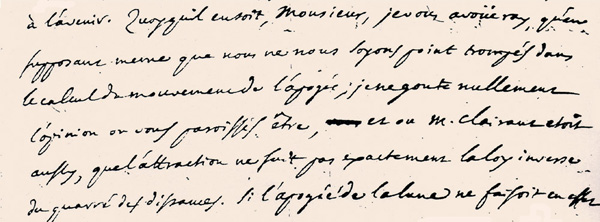 à l'avenir. Quoyqu'il en soit, Monsieur, je vous avoüeray, qu'en
supposant meme que nous ne nous soyons point trompés dans
le calcul du mouvement de l'apogée; je ne goute nullement
l'opinion ou vous paroissés être, et ou M. Clairaut etoit
aussy, que l'attraction ne suit pas exactement la loy inverse
du quarré des distances. Si l'apogée de la lune ne faisoit en effet